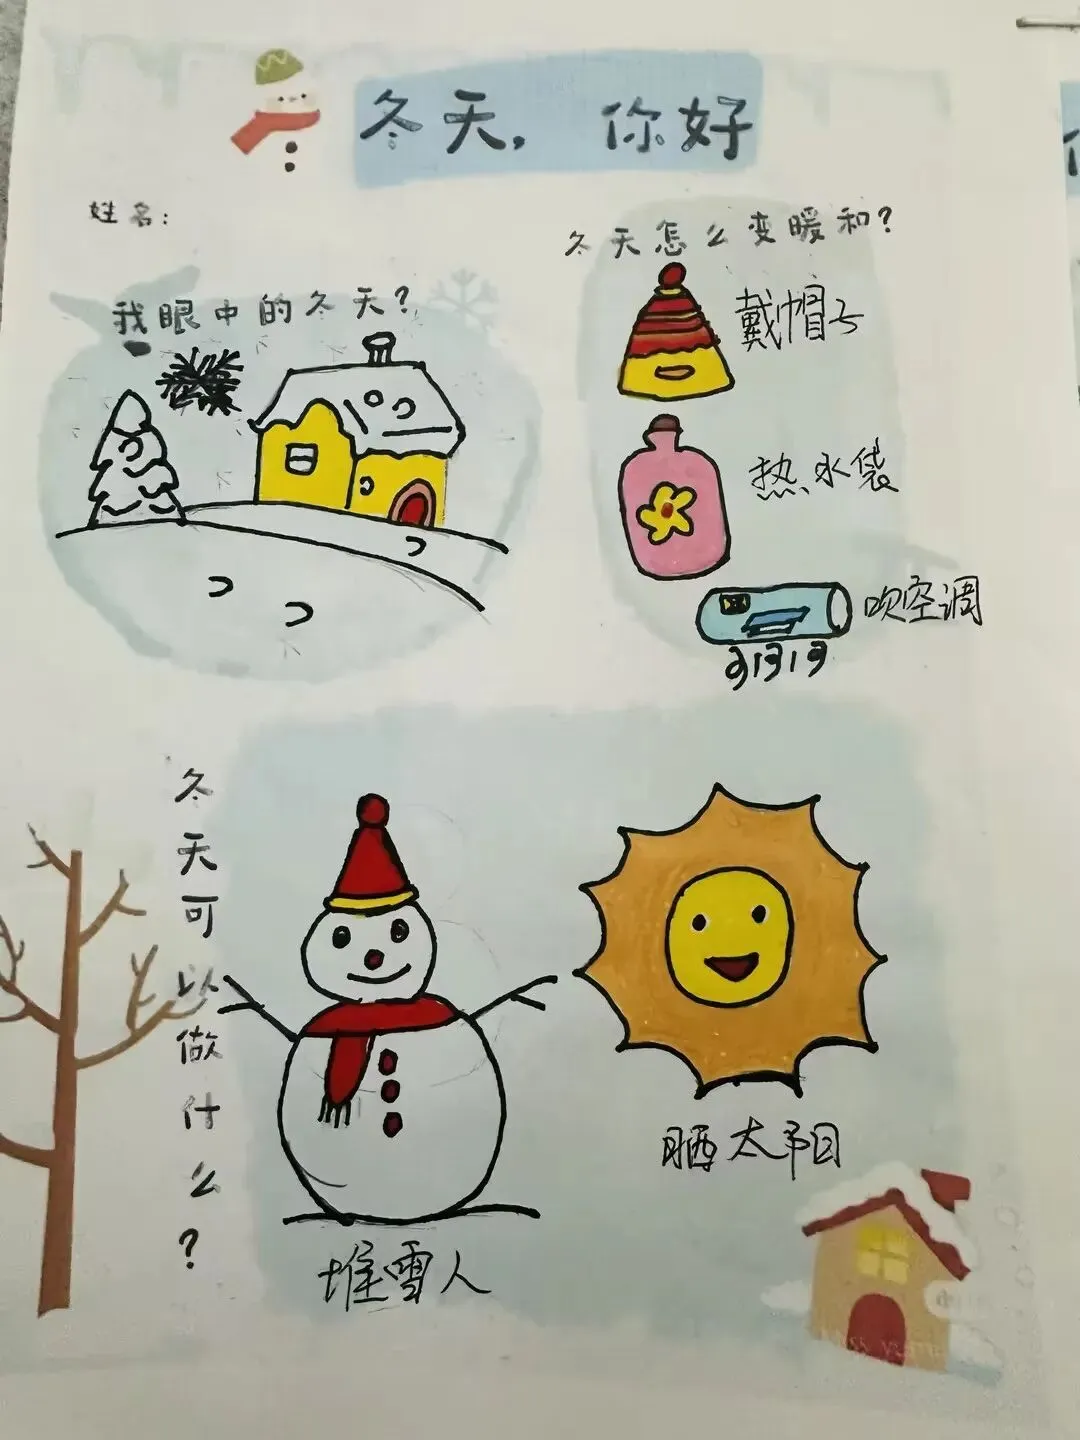 冬天，你好
姓名：
冬天怎么变暖和？
我眼中的冬天？
戴帽子
热水袋
吹空调
冬天可以做什么？
晒太阳
堆雪人